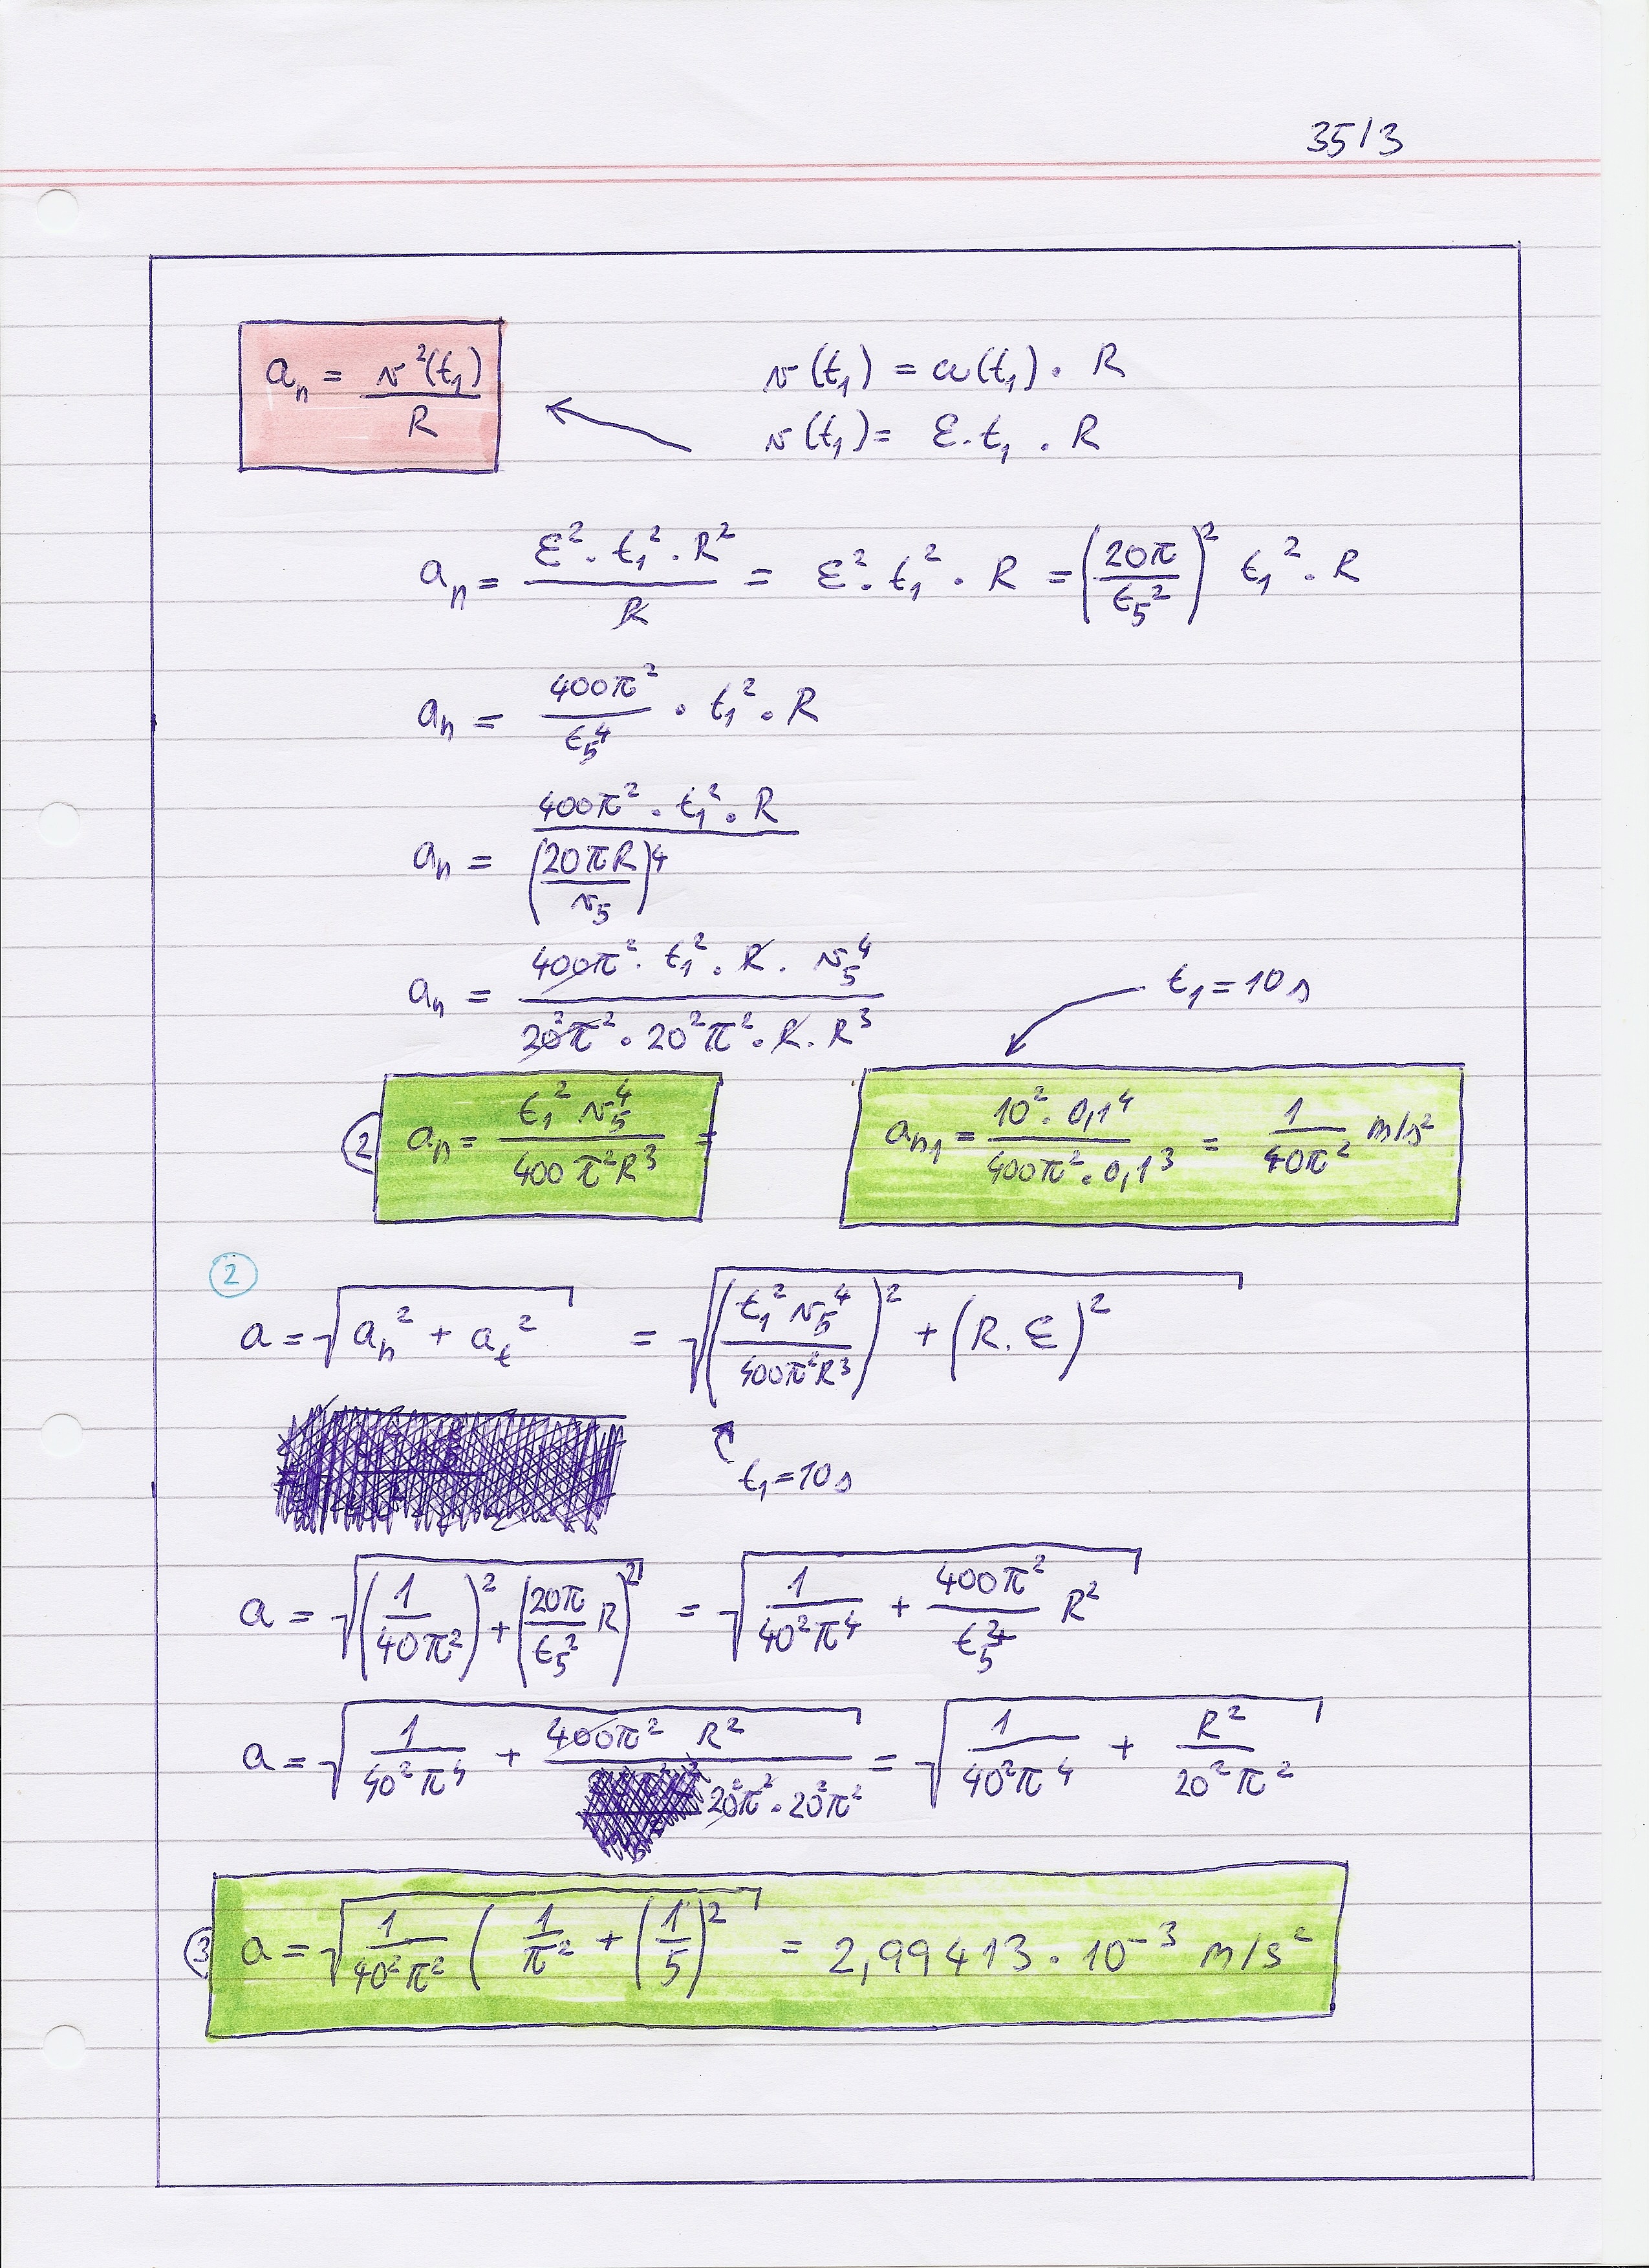 35/3
aₙ = v²(t₁)/R
v(t₁) = ω(t₁) · R
v(t₁) = ε · t₁ · R
aₙ = (ε² · t₁² · R²)/R = ε² · t₁² · R = (20π/t₅²)² t₁² · R
aₙ = 400π²/t₅⁴ · t₁² · R
aₙ = (400π² · t₁² · R)/(20πR/v₅)⁴
aₙ = (400π² · t₁² · R · v₅⁴)/(20²π² · 20²π² · R · R³)
t₁ = 10 s
② aₙ = (t₁² v₅⁴)/(400π²R³) =
aₙ₁ = (10² · 0,1⁴)/(400π² · 0,1³) = 1/(40π²) m/s²
②
a = √(aₙ² + aₜ²) = √(((t₁² v₅⁴)/(400π²R³))² + (R · ε)²)
t₁ = 10 s
a = √((1/(40π²))² + (20π/t₅² R)²) = √(1/(40²π⁴) + 400π²/t₅⁴ R²)
a = √(1/(40²π⁴) + (400π² R²)/(20²π² · 20²π²)) = √(1/(40²π⁴) + R²/(20²π²))
③ a = √(1/(40²π²) (1/π² + (1/5)²) = 2,99413 · 10⁻³ m/s²